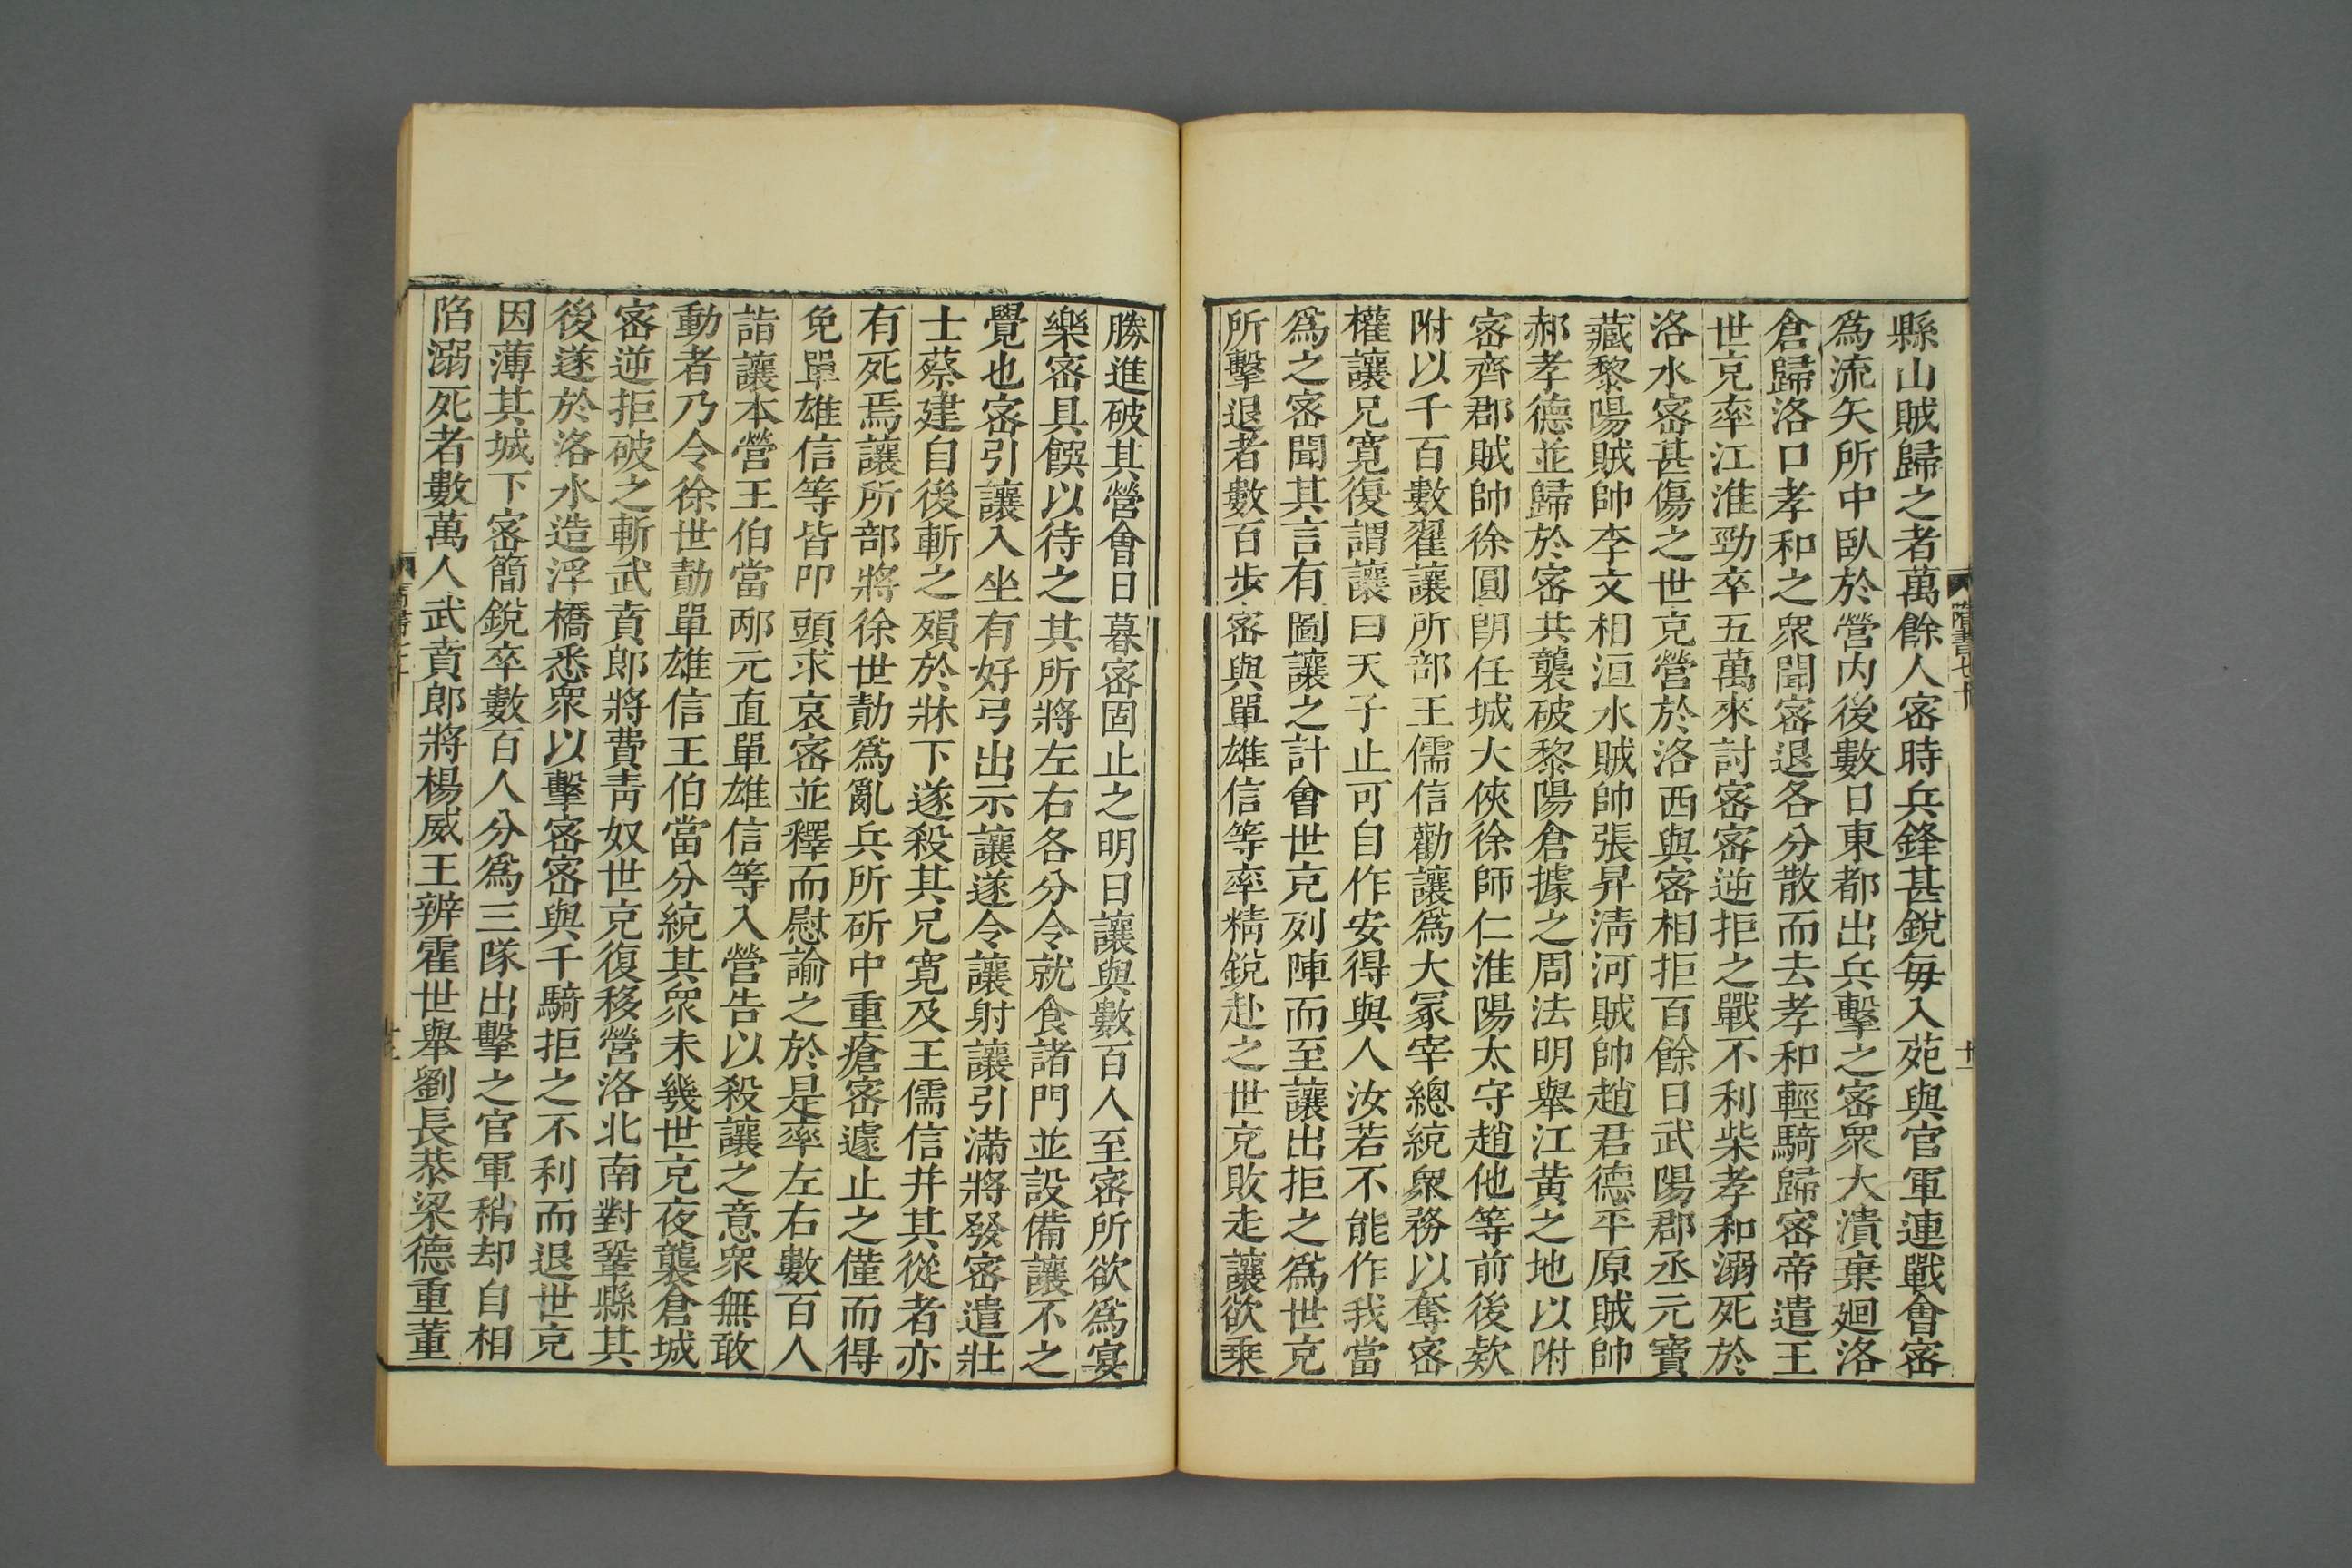 縣山賊歸之者萬餘人密時兵鋒甚銳每入苑與官軍連戰會密
爲流矢所中臥於營內後數日東都出兵擊之密衆大潰棄廻洛
倉歸洛口孝和之衆聞密退各分散而去孝和輕騎歸密帝遣王
世充率江淮勁卒五萬來討密密逆拒之戰不利柴孝和溺死於
洛水密甚傷之世充營於洛西與密相拒百餘日武陽郡丞元寶
藏黎陽賊帥李文相洹水賊帥張昇淸河賊帥趙君德平原賊帥
郝孝德並歸於密共襲破黎陽倉據之周法明舉江黃之地以附
密齊郡賊帥徐圓朗任城大俠徐師仁淮陽太守趙他等前後款
附以千百數翟讓所部王儒信勸讓爲大冢宰總統衆務以奪密
權讓兄寬復謂讓曰天子止可自作安得與人汝若不能作我當
爲之密聞其言有圖讓之計會世充列陣而至讓出拒之爲世充
所擊退者數百步密與單雄信等率精銳赴之世充敗走讓欲乗
隋書七十
十一
勝進破其營會日暮密固止之明日讓與數百人至密所欲爲宴
樂密具饌以待之其所將左右各分令就食諸門並設備讓不之
覺也密引讓入坐有好弓出示讓遂令讓射讓引滿將發密遣壯
士蔡建自後斬之殞於牀下遂殺其兄寬及王儒信并其從者亦
有死焉讓所部將徐世勣爲亂兵所斫中重瘡密遽止之僅而得
免單雄信等皆叩頭求哀密並釋而慰諭之於是率左右數百人
詣讓本營王伯當邴元直單雄信等入營告以殺讓之意衆無敢
動者乃令徐世勣單雄信王伯當分統其衆未幾世充夜襲倉城
密逆拒破之斬武賁郎將費靑奴世充復移營洛北南對鞏縣其
後遂於洛水造浮橋悉衆以擊密密與千騎拒之不利而退世充
因薄其城下密簡銳卒數百人分爲三隊出擊之官軍稍却自相
陷溺死者數萬人武賁郎將楊威王辨霍世舉劉長恭梁德重董